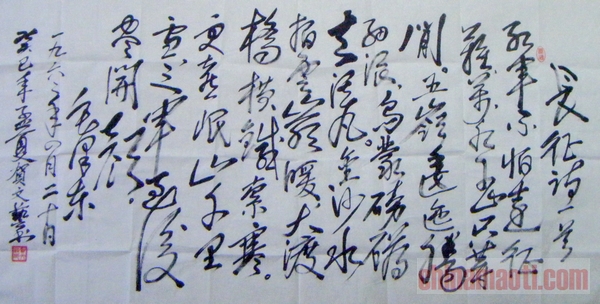 长征诗一首
红军不怕远征
难萬水千山只等
闲五嶺逶迤腾
细浪烏蒙磅礴
走泥丸金沙水
拍雲崖暖大渡
橋橫鐵索寒
更喜岷山千里
雪三軍过後
盡開颜
毛泽东
一九六二年四月二十日
癸巳年孟夏賀文藝
chinamaoti.com